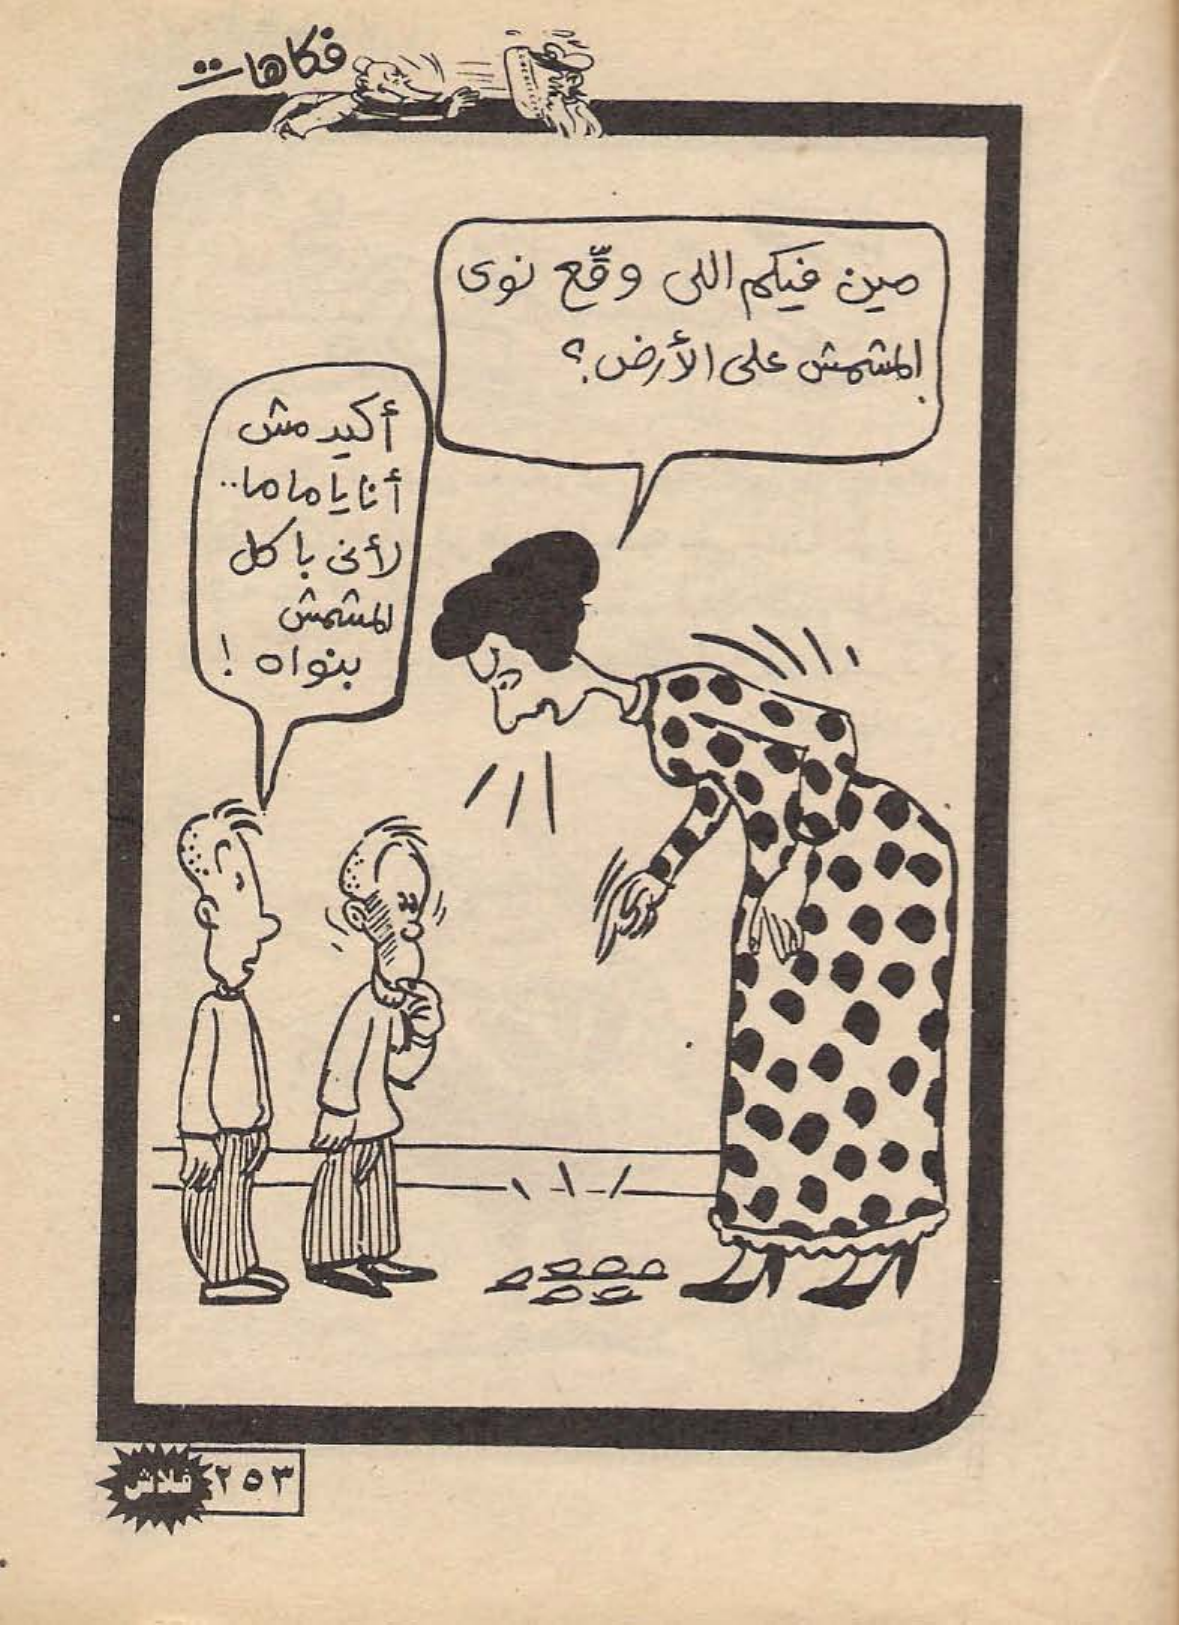 فكاهات
مين فيكم اللى وقّع نوى
المشمش على الأرض؟
أكيد مش
أنا يا ماما..
لأنى باكل
المشمش
بنواه !
٢٥٣
فلاش